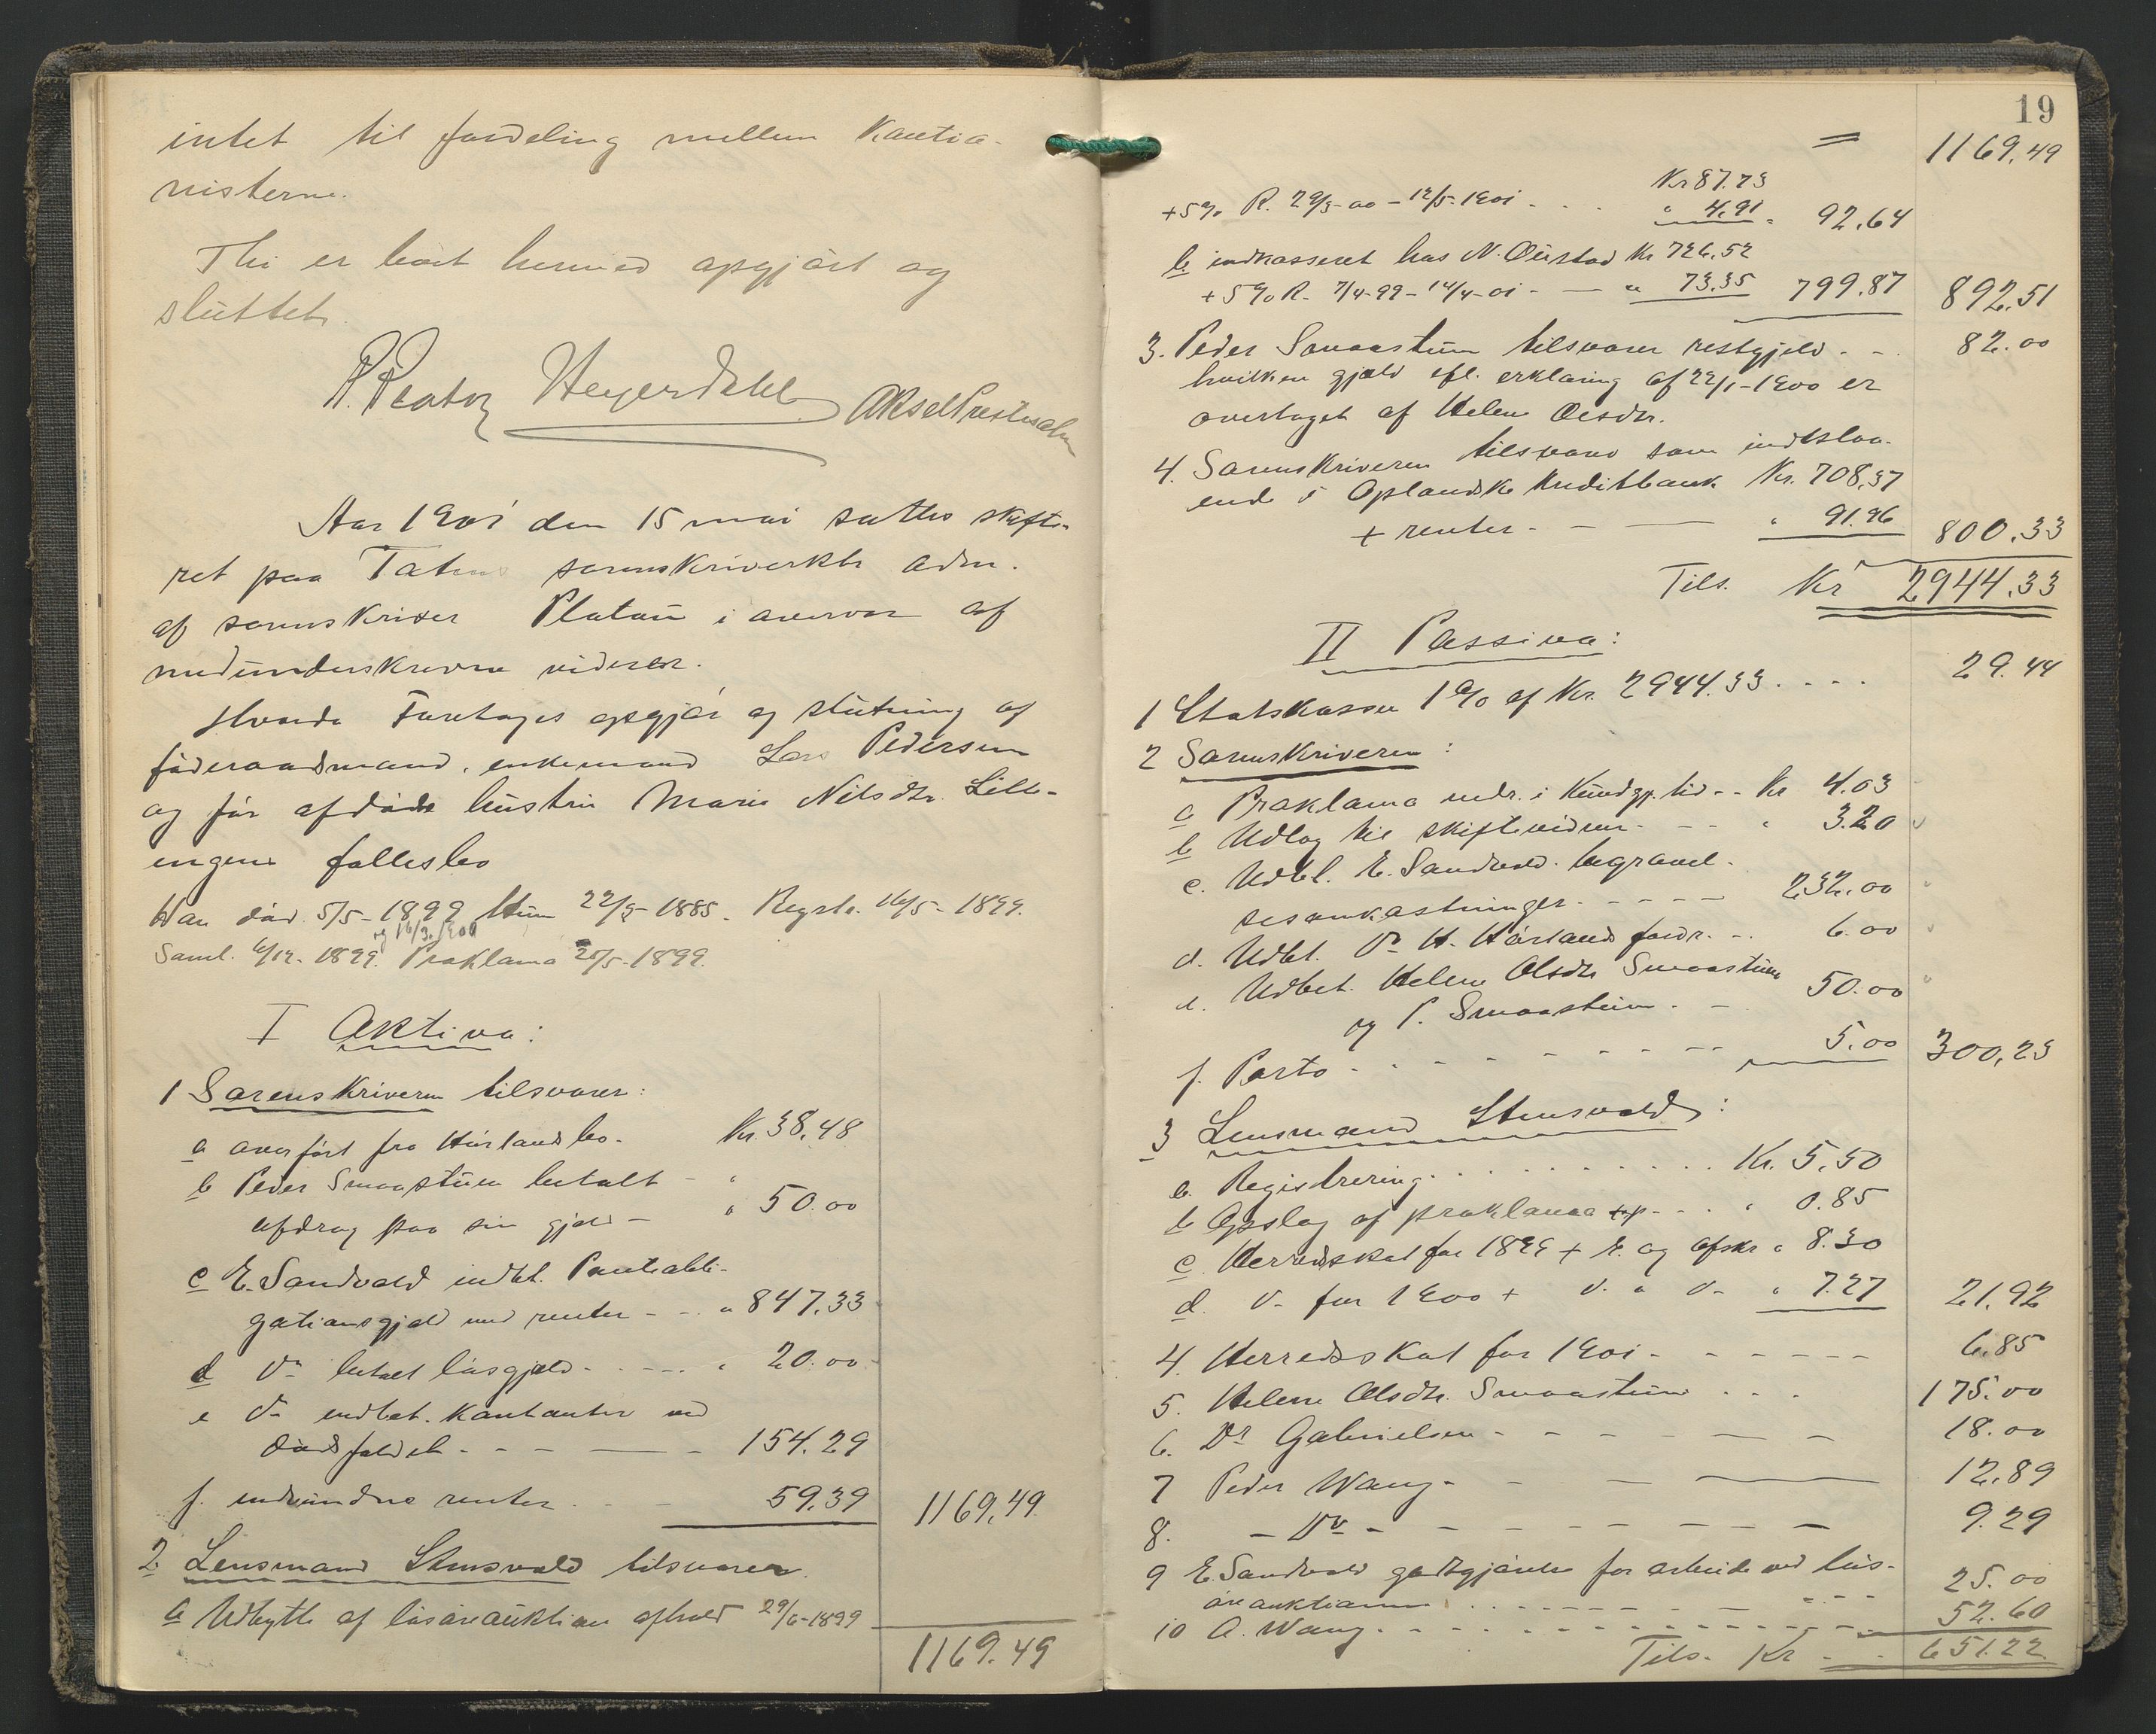 intet til fordeling mellem Kautio-
nisterne.
Thi er boet hermed opgjørt og
sluttet.
Heyerdahl
Aar 1901 den 15 mai sattes skifte-
ret paa sorenskriverktr adm.
af sorenskriver Platou i overvær af
nedunderskrevne vidner.
Hvorda Foretages opgjør og slutning af
føderaadsmand, enkemand Lars Pedersen
og før afdøde hustru Maria Nilsdtr. Lille-
engens fællesbo
Han død 5/5-1899 Hun 22/5-1885. Regstr. 16/5-1899.
og 16/3.1900
Saml. 6/12-1899. Proklama 25/5-1899.
I Aktiva:
1 Sorenskriveren tilsvarer:
a overført fra Hørlands bo. Kr. 38,48
b Peder Smaastuen betalt - "
afdrag paa sin gjæld - " 50.00
c E. Sandvold indbt. Panteobli-
gationsgjæld med renter - - " 847,33
d Do betalt løsgjæld - - - - " 20.00
e Do indbet. Kontanter ved
dødsfaldet - - - - 154.29
f. indvundne renter - - 59,39 1169,49
2 Lensmand Stensvold tilsvarer
a Udbytte af løsøreauktion afholdt 29/6-1899
1169.49
19
= 1169,49
Kr 87.73
+5% R. 29/3-00-12/5-1901 - - " 4,91 " 92,64
b. indkasseret hos N. Øistad Kr 726,52
+5% R. 7/4-99-14/4-01 - - " 73.35 799.87 892,51
3. Peder Smaastuen tilsvarer restgjæld - - 82.00
hvilken gjæld efl. erklæring af 22/1-1900 er
overtaget af Helene Olsdtr.
4. Sorenskriveren tilsvarer som indestaa-
ende i Oplandske Kreditbank Kr. 708,37
+ renter - - - " 91.96 800.33
Tils. Kr 2944.33
II Passiva:
1 Statskassen 1% af Kr. 2944.33 . . . . 29.44
2 Sorenskriveren:
a Proklama indr. i Kundgj. tid - - Kr 4.03
b Udlæg til skiftevidner - - - " 3.20
c. Udbt. E. Sandvold. begravel-
sesomkostninger - - - - - 232.00
d. Udbt. Dr H. Hørlands fordr. - - 6.00
e. Udbet. Helene Olsdtr Smaastuen
og P. Smaastuen - - 50.00
f. Porto - - - - - - - 5.00 300,23
3 Lensmand Stensvold:
a. Registrering . . . . . . . . . . Kr. 5,50
b Opslag af proklama - - - " 0.85
c. Herredsskat for 1899 + R. og afskr " 8.30
d. Do for 1900 + Do " Do " 7.27 21,92
4. Herredsskat for 1901 - - - - - - 6.85
5. Helene Olsdtr. Smaastuen . . . 175.00
6. Dr Gabrielsen - - - - - - 18.00
7 Peder Wang - - - - 12.89
8. - Do - - - - - - - - 9.29
9 E. Sandvold godtgjørelse for arbeide ved løs-
øreauktionen - - - - - - 25.00
10 A. Wang - - - - - - - - - 52.60
Tils. Kr - - 651.22